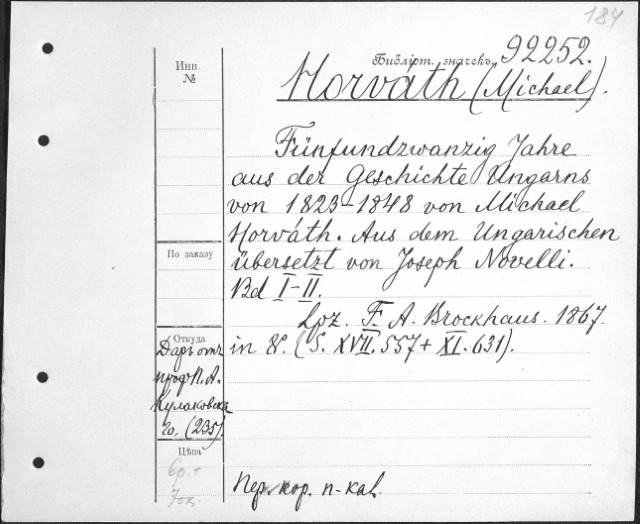 184
Библіот. значекъ 92252.
Инв.
№
Horváth (Michael).
Fünfundzwanzig Jahre
aus der Geschichte Ungarns
von 1823-1848 von Michael
Horváth. Aus dem Ungarischen
übersetzt von Joseph Novelli.
Bd I-II.
Lpz. F. A. Brockhaus. 1867.
in 8°. (S. XVII.557 + XI.631).
По заказу
Откуда
Даръ отъ
проф. П. А.
Кулаковска
го. (235).
Цѣна
6р. +
Пер. кор. п-каl.